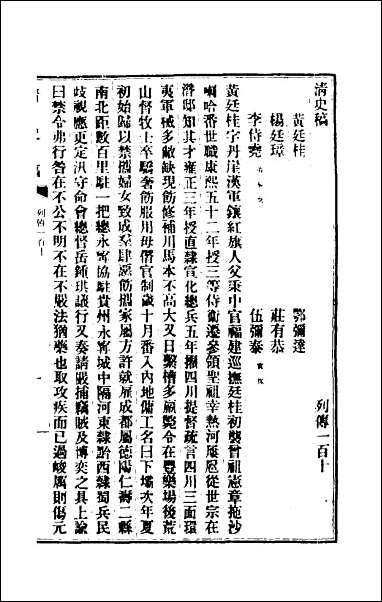 清史稿
列傳一百十
黃廷桂 鄂彌達
楊廷璋 莊有恭
李侍堯 伍彌泰
黃廷桂字丹崖漢軍鑲紅旗人父秉中官福建巡撫廷桂初襲曾祖憲章拖沙
喇哈番世職康熙五十二年授三等侍衛遷參領聖祖幸熱河屢扈從世宗在
潛邸知其才雍正三年授直隸宣化總兵五年擢四川提督疏言四川三面環
夷軍械多敝缺現飭修補川馬本不高大又日繫槽多羸斃令在豐樂場後荒
山督牧士卒驕奢飭服用毋僭官制歲十月番入內地傭工名曰下壩次年夏
初始歸以禁攜婦女致成羣肆匪飭攜家屬方許就雇成都屬德陽仁壽二縣
南北距數百里駐一把總永寧協駐貴州永寧城中隔河東隸黔西隸蜀兵民
歧視應更定汛守命會總督岳鍾琪議行又奏請嚴捕竊賊及博奕之具上諭
曰禁令弗行咎在不公不明不在不嚴法猶藥也取攻疾而已過峻厲則傷元
清史稿 列傳一百十 一